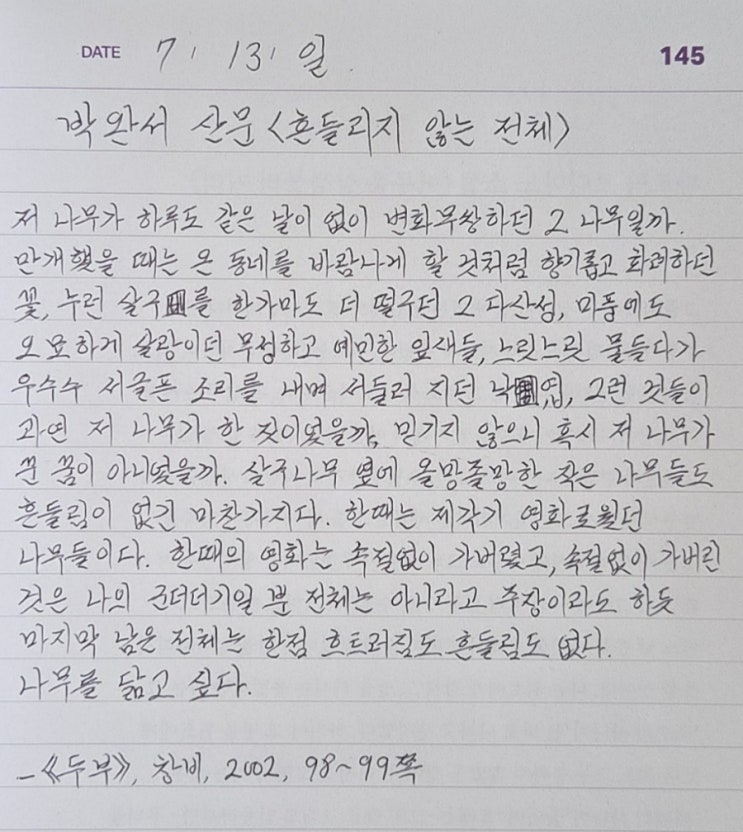 DATE 7 / 13 / 일 145
박완서 산문 <흔들리지 않는 전체>
저 나무가 하루도 같은 날이 없이 변화무쌍하던 그 나무일까.
만개했을 때는 온 동네를 바람나게 할 것처럼 향기롭고 화려하던
꽃, 누런 살구를 한가마도 더 떨구던 그 다산성, 미풍에도
오묘하게 살랑이던 무성하고 예민한 잎새들, 느릿느릿 물들다가
우수수 서글픈 소리를 내며 서둘러 지던 낙엽, 그런 것들이
과연 저 나무가 한 짓이었을까, 믿기지 않으니 혹시 저 나무가
꾼 꿈이 아니었을까. 살구나무 옆에 올망졸망한 작은 나무들도
흔들림이 없긴 마찬가지다. 한때는 제각기 영화로웠던
나무들이다. 한때의 영화는 속절없이 가버렸고, 속절없이 가버린
것은 나의 군더더기일 뿐 전체는 아니라고 주장이라도 하듯
마지막 남은 전체는 한점 흐트러짐도 흔들림도 없다.
나무를 닮고 싶다.
- 《두부》, 창비, 2002, 98~99쪽